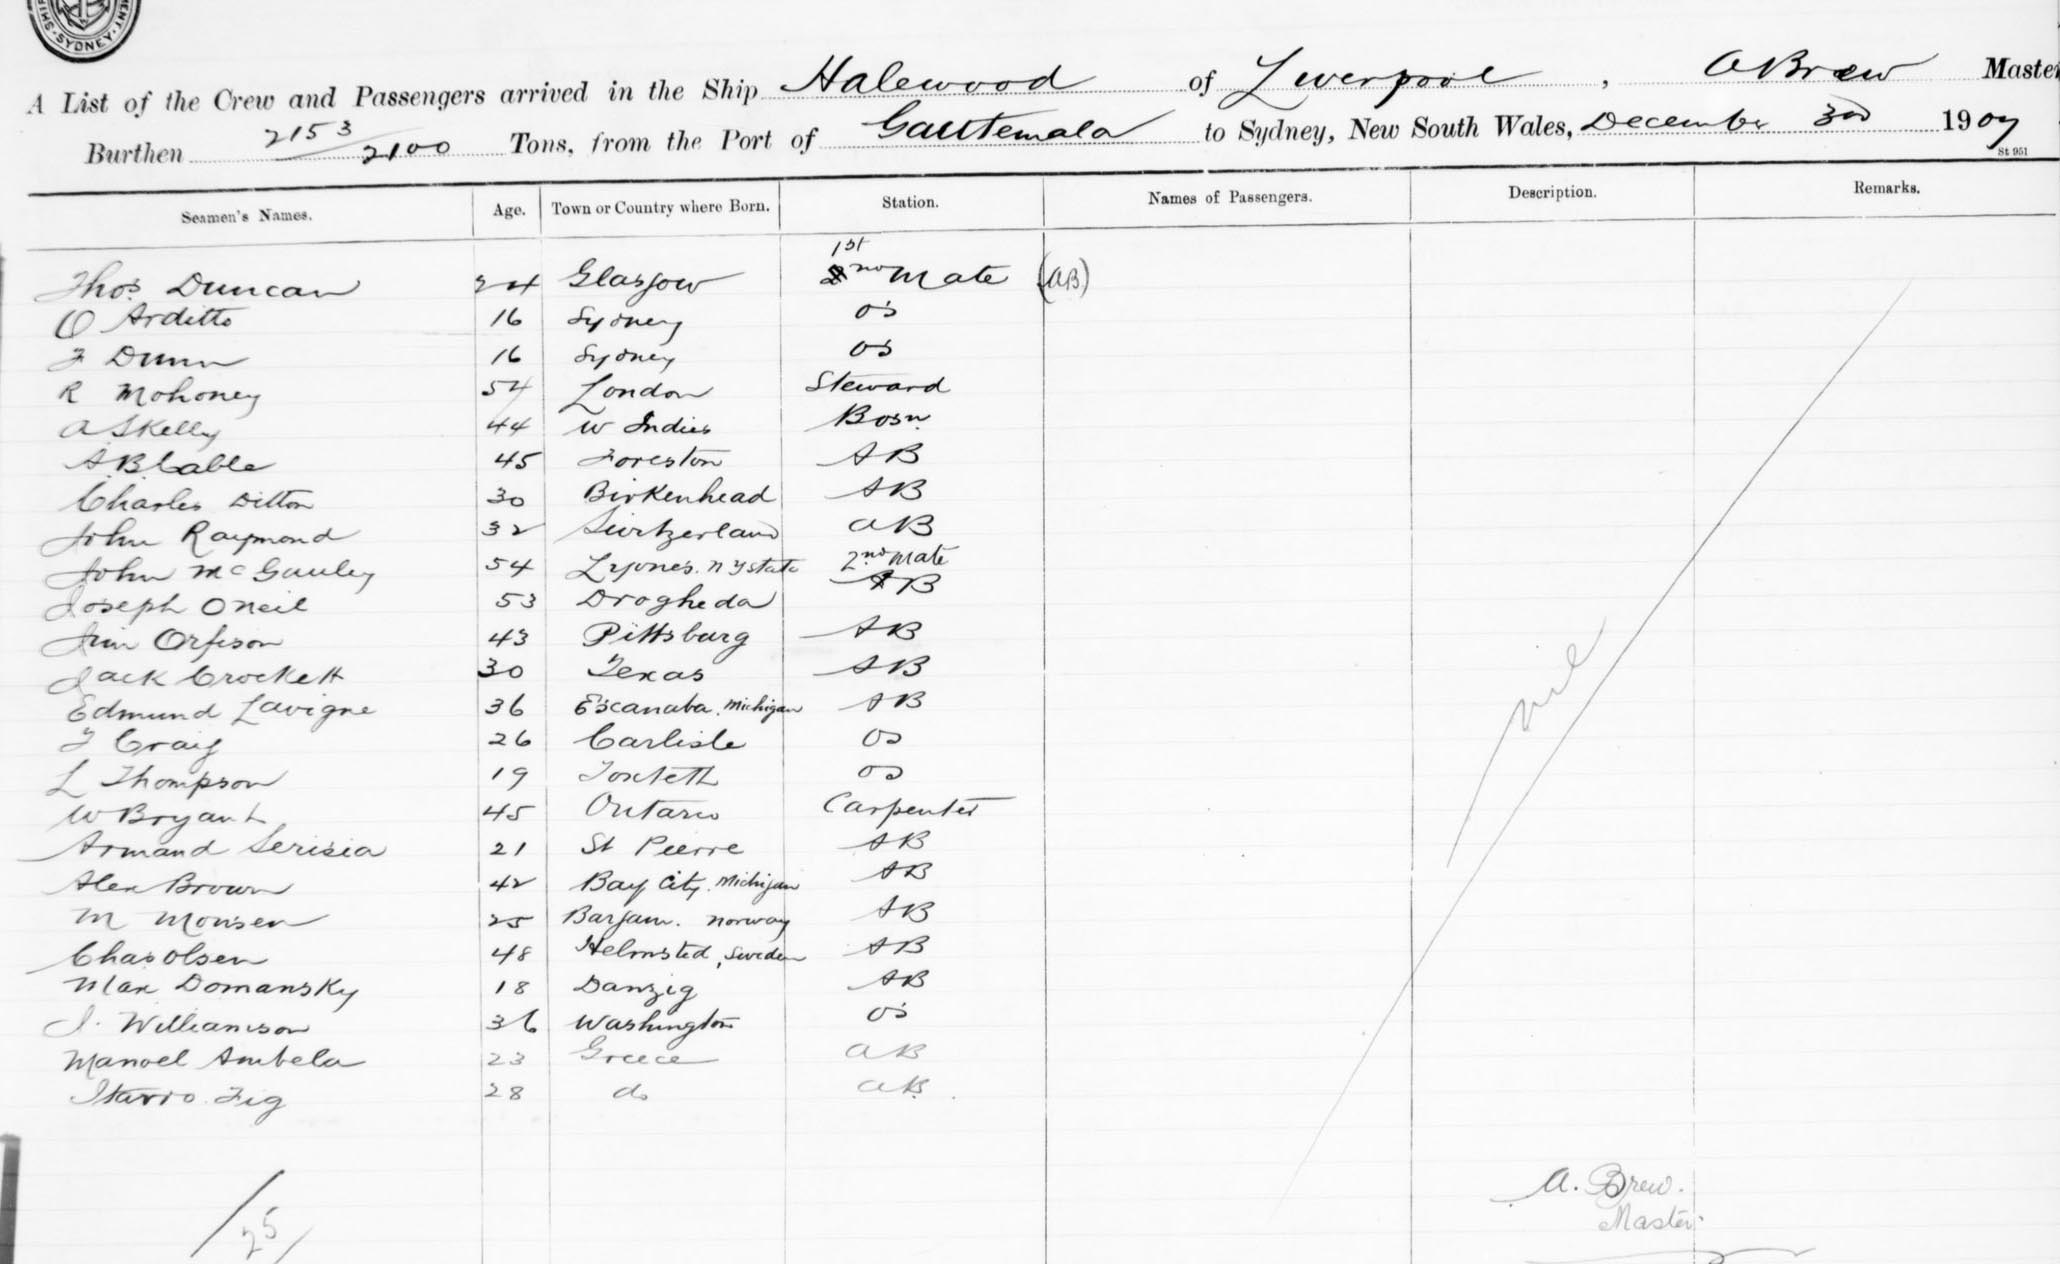 SYDNEY
A List of the Crew and Passengers arrived in the Ship Halewood of Liverpool, A Brew Master
Burthen 2153/2100 Tons, from the Port of Gautemala to Sydney, New South Wales, December 3rd 1907
St 951
Seamen's Names. Age. Town or Country where Born. Station. Names of Passengers. Description. Remarks.
1st
Thos Duncan 24 Glasgow Mate (AB)
O Arditto 16 Sydney OS
F Dunn 16 Sydney OS
R Mohoney 54 London Steward
A Skelly 44 W Indies Bosn
A.B. Cable 45 Foreston AB
Charles Ditton 30 Birkenhead AB
John Raymond 32 Switzerland AB
John McGauley 54 Lyones. N Y State 2nd Mate
Joseph ONeil 53 Drogheda AB
Jim Orfeson 43 Pittsburg AB
Jack Crockett 30 Texas AB
Edmund Lavigne 36 Escanaba. Michigan AB
F Craig 26 Carlisle OS
L Thompson 19 Toxteth OS
W Bryant 45 Ontario Carpenter
Armand Serisia 21 St Pierre AB
Alex Brown 42 Bay City. Michigan AB
M Monsen 25 Norway AB
Chas Olsen 48 Helmsted, Sweden AB
Max Domansky 18 Danzig AB
J. Williamson 36 Washington OS
Manoel Ambela 23 Greece AB
Stavro Fig 28 do AB.
nil
A. Brew.
Master
/25/